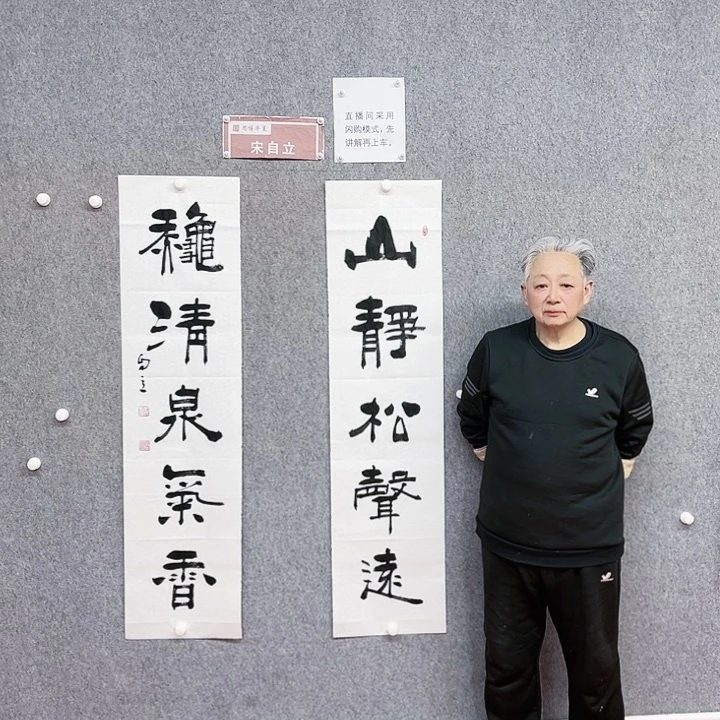 直播间采用
闪购模式,先
讲解再上车。
宋自立
山靜松聲遠
龝清泉氣香
自立